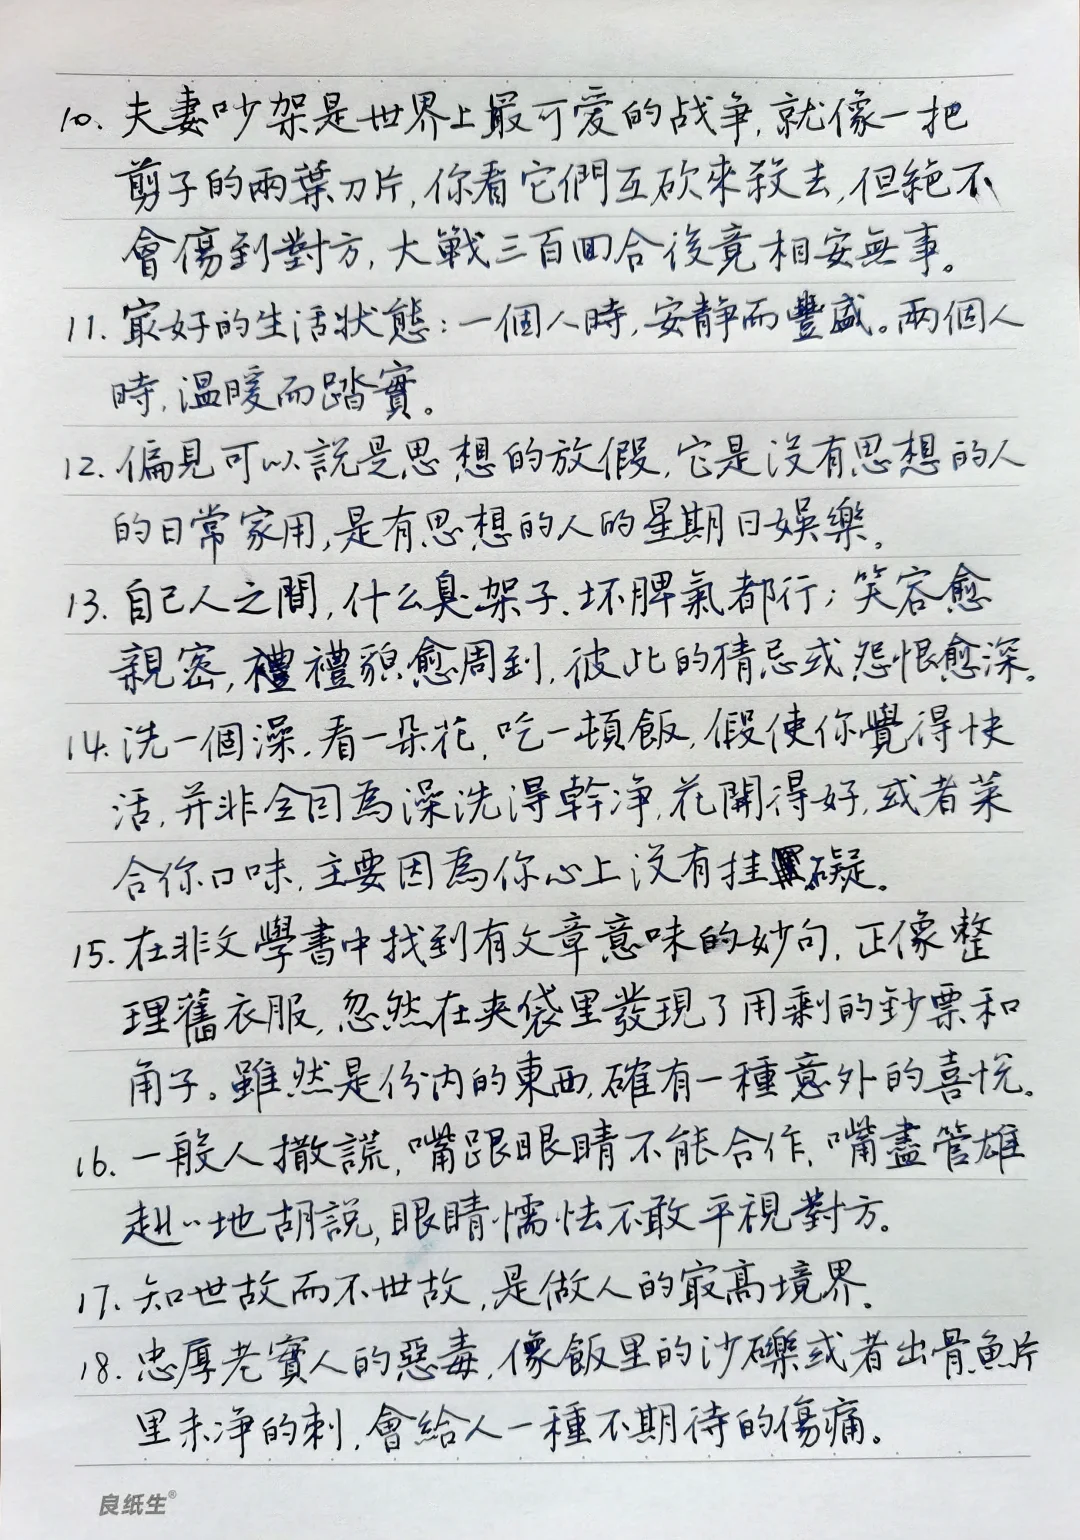 10、夫妻吵架是世界上最可爱的战争,就像一把
剪子的兩葉刀片,你看它們互砍來殺去,但絕不
會傷到對方,大戰三百回合後竟相安無事。
11.最好的生活狀態:一個人時,安靜而豐盛。兩個人
時,温暖而踏實。
12.偏見可以説是思想的放假,它是没有思想的人
的日常家用,是有思想的人的星期日娛樂。
13.自己人之間,什么臭架子、坏脾氣都行;笑容愈
親密,禮禮貌愈周到,彼此的猜忌或怨恨愈深。
14.洗一個澡,看一朵花,吃一頓飯,假使你覺得快
活,并非全因為澡洗得幹净,花開得好,或者菜
合你口味,主要因為你心上没有挂礙。
15.在非文學書中找到有文章意味的妙句,正像整
理舊衣服,忽然在夾袋里發現了用剩的鈔票和
角子。雖然是份内的東西,確有一種意外的喜悦。
16.一般人撒謊,嘴跟眼睛不能合作,嘴盡管雄
赳赳地胡説,眼睛懦怯不敢平視對方。
17.知世故而不世故,是做人的最高境界。
18.忠厚老實人的惡毒,像飯里的沙礫或者出骨魚片
里未净的刺,會給人一種不期待的傷痛。
良纸生®